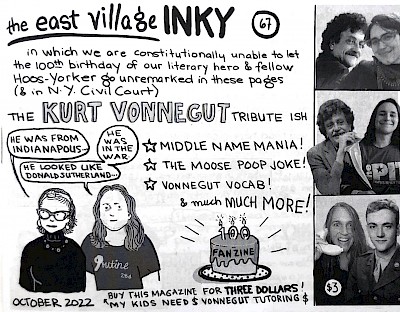 the east village INKY 67
in which we are constitutionally unable to let
the 100th birthday of our literary hero & fellow
Hoos-Yorker go unremarked in these pages
(& in N.Y. Civil Court)
THE KURT VONNEGUT TRIBUTE ISH
HE WAS FROM
INDIANAPOLIS...
HE WAS
IN THE
WAR
HE LOOKED LIKE
DONALD SUTHERLAND...
☆ MIDDLE NAME MANIA!
☆ THE MOOSE POOP JOKE!
☆ VONNEGUT VOCAB!
& much MUCH MORE!
100
FANZINE
OCTOBER 2022
BUY THIS MAGAZINE FOR THREE DOLLARS!
MY KIDS NEED $ VONNEGUT TUTORING $
$3